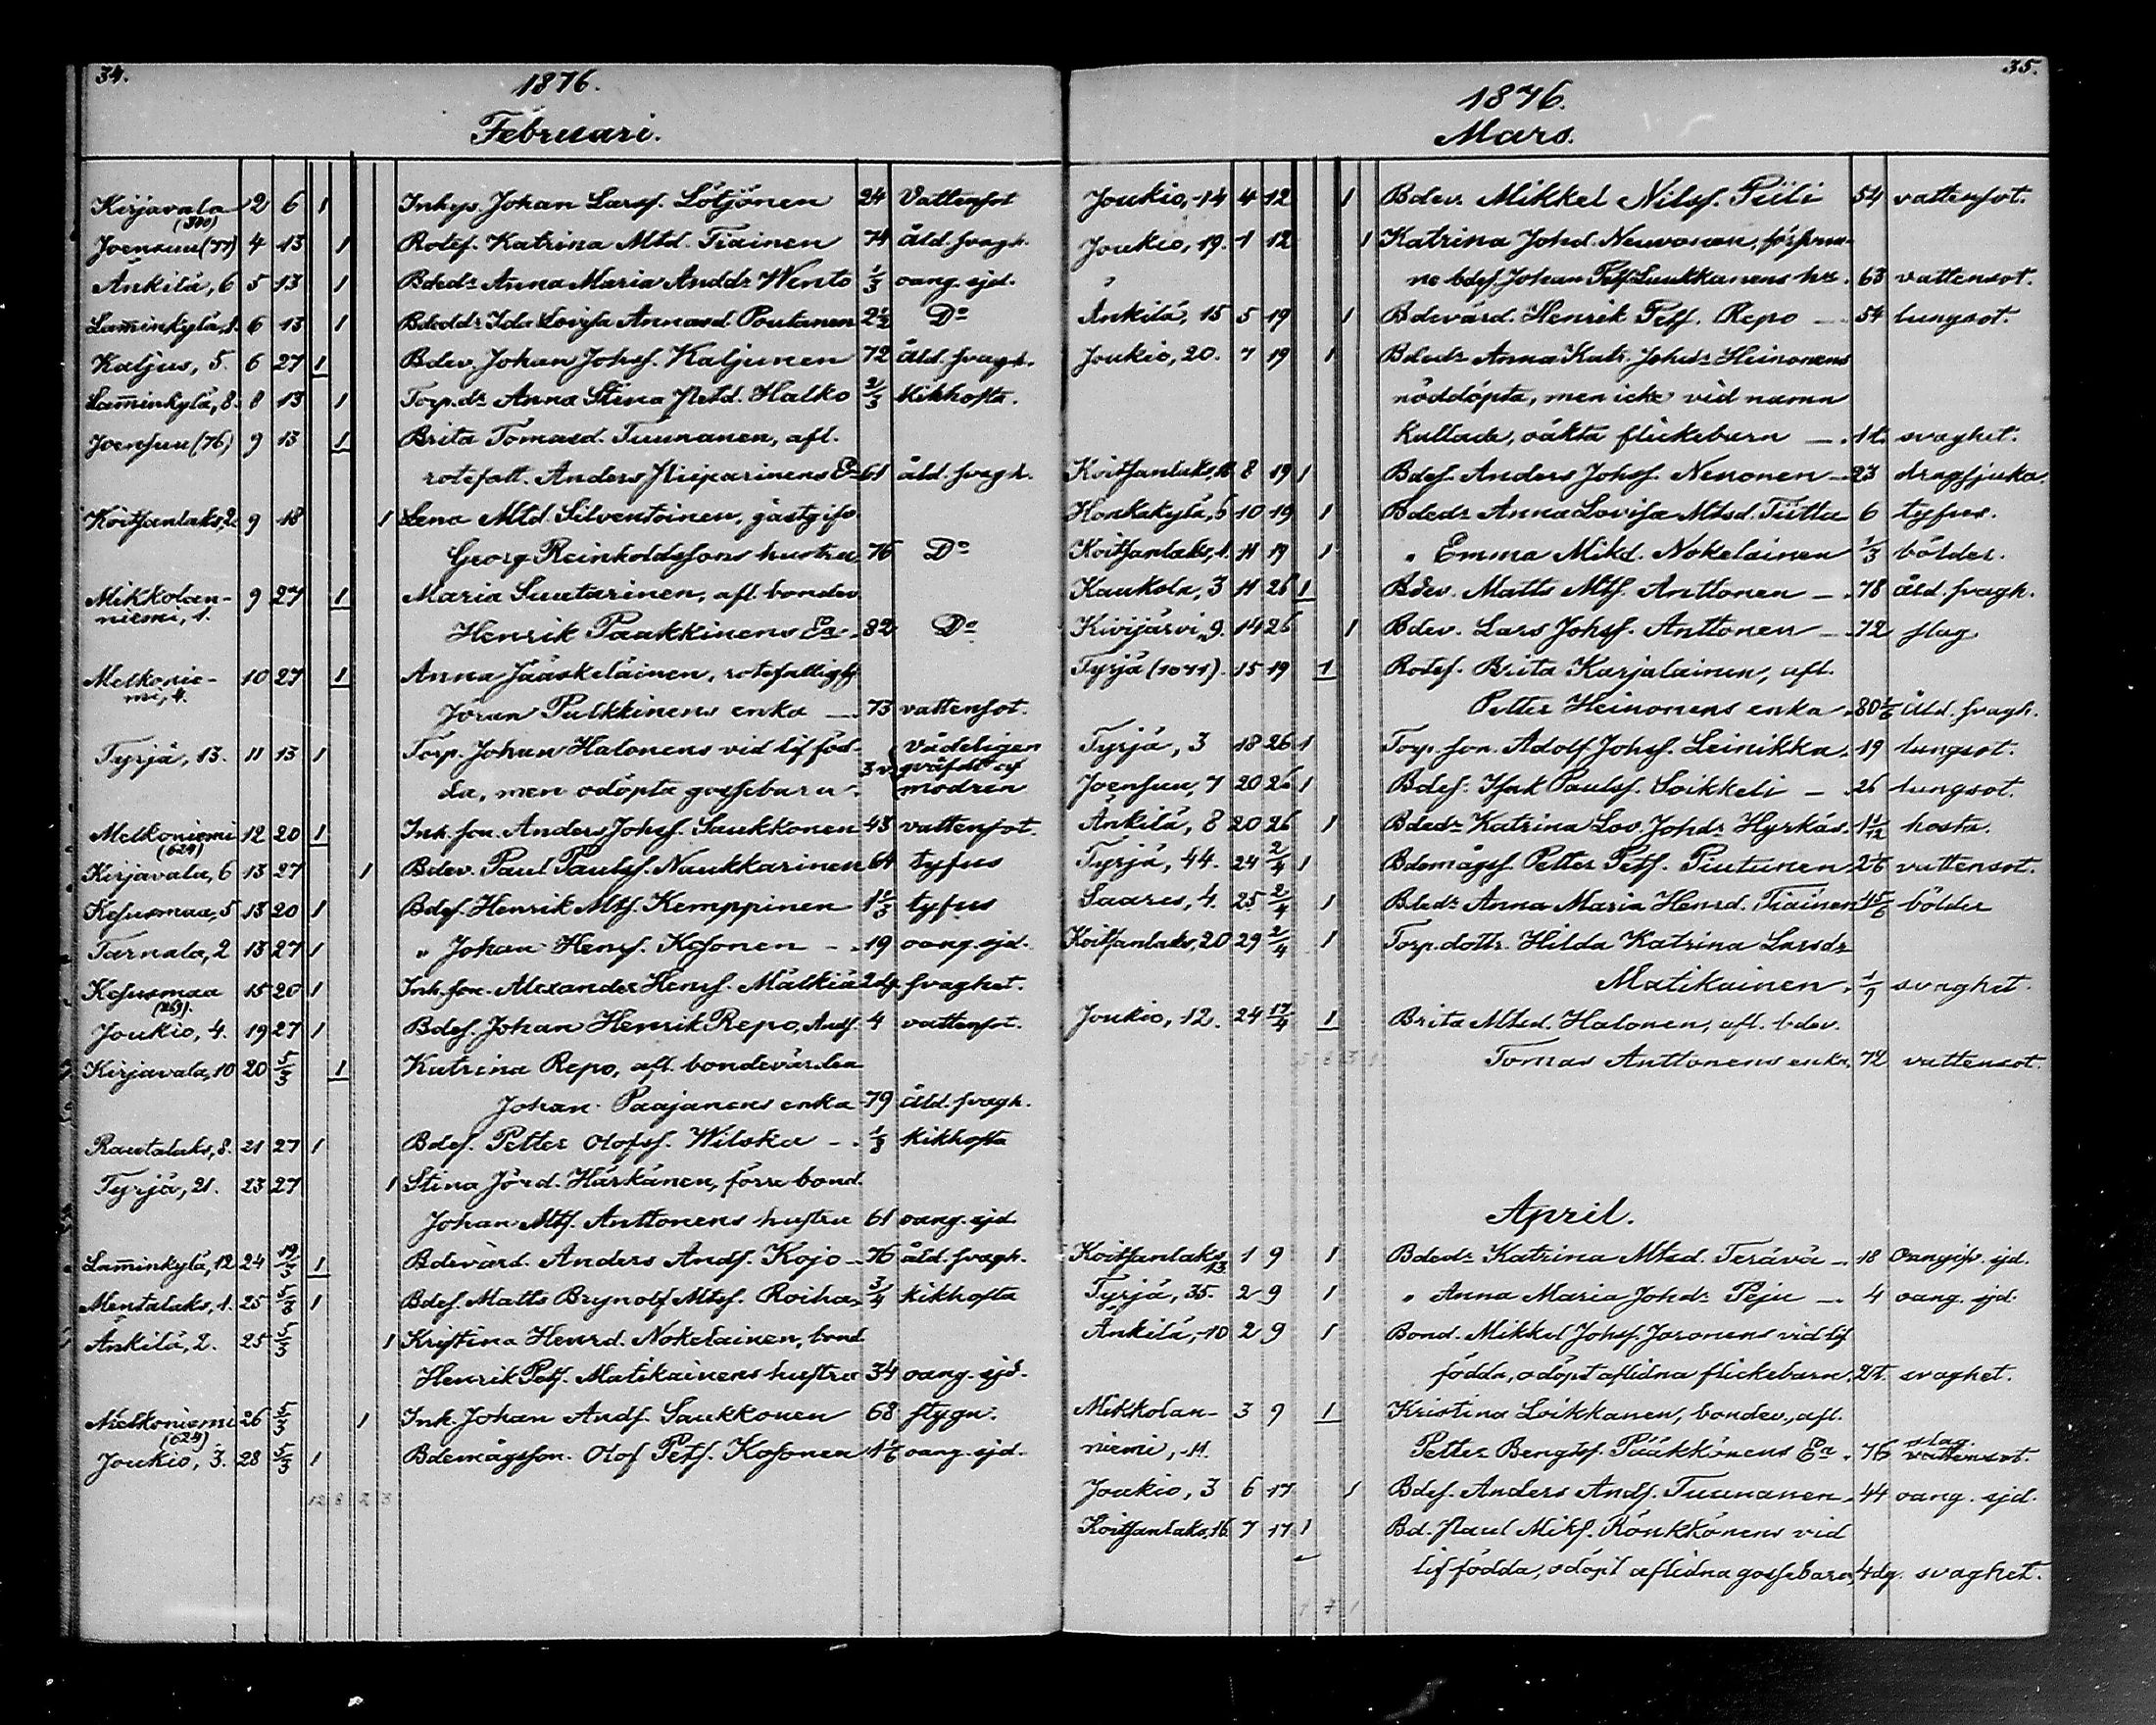 34.
1876.
Februari.
Kirjavala 2 6 1 Inhys Johan Larsf. Lötjönen 24 Vattensot
(380)
Joensuu (77) 4 13 1 Rotef. Katrina Mtd. Tiainen 74 åld. svagh.
Änkilä, 6 5 13 1 Bdedr Anna Maria Anddr Wento 1/3 oang. sjd.
Lam̄inkylä, 1. 6 13 1 Bdeddr Ida Lovisa Annasd Poutanen 2 1/2 Do
Kaljus, 5. 6 27 1 Bdev. Johan Johsf. Kaljunen 72 åld. svagh.
Lam̄inkylä, 8. 8 13 1 Torp.dr Anna Stina Petd. Halko 2/3 kikhosta.
Joensuu (76) 9 13 1 Brita Tomasd. Tuunanen, afl.
rotefatt. Anders Piiparinens Ea 61 åld. svagh.
Koitsanlaks, 2. 9 18 1 Lena Mtd. Silventoinen, gästgifv
Georg Reinholdssons hustru 76 Do
Mikkolan- 9 27 1 Maria Suutarinen, afl. bondev
niemi, 1.
Henrik Paakkinens Ea 82 Do
Melkonie- 10 27 1 Anna Jääskeläinen, rotefattighj
mi, 4.
Jöran Pulkkinens enka 73 vattensot.
Tyrjä, 13. 11 13 1 Torp. Johan Halonens vid lif föd- 3 v. vådeligen
qväfdt af
da, men odöpta gossebarn modren
Melkoniemi 12 20 1 Inh. son. Anders Johsf. Saukkonen 43 vattensot.
(624)
Kirjavala, 6 13 27 1 Bdev. Paul Paulsf. Naukkarinen 64 tyfus
Kesusmaa, 5 13 20 1 Bdef. Henrik Mtf. Kemppinen 1 1/3 tyfus
Tarnala, 2 13 27 1 „ Johan Hensf. Kosonen 19 oang. sjd.
Kesusmaa 15 20 1 Inh. son. Alexander Hensf. Mälkiä 2 dg svaghet.
(269).
Joukio, 4. 19 27 1 Bdef. Johan Henrik Repo, Andf. 4 vattensot.
Kirjavala, 10 20 5/3 1 Katrina Repo, afl. bondevärden
Johan Paajanens enka 79 åld. svagh.
Rautalaks, 8. 21 27 1 Bdef. Petter Olofsf. Wilska 1/3 kikhosta
Tyrjä, 21. 23 27 1 Stina Jörd. Härkänen, förre bond.
Johan Mtf. Anttonens hustru 61 oang. sjd
Lam̄inkylä, 12 24 19/3 1 Bdevärd. Anders Andf. Kojo 76 åld. svagh.
Mentalaks, 1. 25 5/3 1 Bdef. Matts Brynolf Mtsf. Roiha 3/4 kikhosta
Änkilä, 2. 25 5/3 1 Kristina Henrd. Nokelainen, bond
Henrik Petf. Matikainens hustru 34 oang. sjd.
Melkoniemi 26 5/3 1 Inh. Johan Andf. Saukkonen 68 stygn.
(624)
Joukio, 3. 28 5/3 1 Bdemågsson. Olof Petf. Kosonen 1 1/6 oang. sjd.
12 8 2 3
35.
1876.
Mars.
Joukio, 14 4 12 1 Bdev. Mikkel Nilsf. Piili 54 vattensot.
Joukio, 19. 1 12 1 Katrina Johd. Neuvonen, försvun-
„ ne bdef. Johan Petf Laukkanens hu. 63 vattensot.
Änkilä, 15 5 19 1 Bdevärd. Henrik Petf. Repo 54 lungsot.
Joukio, 20. 7 19 1 Bdedr Anna Katr. Johdr Heinonens
nöddöpta, men icke vid namn
kallade, oäkta flickebarn 1 t. svaghet.
Koitsanlaks, 16 8 19 1 Bdef. Anders Johsf. Nenonen 23 dragsjuka.
Honkakylä, 6 10 19 1 Bdedr Anna Lovisa Mtsd. Tiitta 6 tyfus.
Koitsanlaks, 1. 11 19 1 „ Emma Mikd. Nokelainen 1/3 bölder.
Kaukola, 3 11 26 1 Bdev. Matts Mtf. Anttonen 78 åld. svagh.
Kivijärvi, 9. 14 26 1 Bdev. Lars Johsf. Anttonen 72 slag
Tyrjä (1071). 15 19 1 Rotef. Brita Karjalainen, afl.
Petter Heinonens enka 80 1/6 åld. svagh.
Tyrjä, 3 18 26 1 Torp. son. Adolf Johsf. Leinikka 19 lungsot.
Joensuu, 7 20 26 1 Bdef. Isak Paulsf. Loikkeli 26 lungsot.
Änkilä, 8 20 26 1 Bdedr Katrina Lov. Johdr Hyrkäs 1 1/12 hosta.
Tyrjä, 44. 24 2/4 1 Bdemågsf. Petter Petf. Piutunen 2 1/6 vattensot.
Saares, 4. 25 2/4 1 Bdedr Anna Maria Henrd. Tiainen 4 5/6 bölder
Koitsanlaks, 20 29 2/4 1 Torp.dottr. Hilda Katrina Larsdr
Matikainen 1/9 svaghet.
Joukio, 12. 24 17/4 1 Brita Mtsd. Halonen, afl. bdev.
Tomas Anttonens enka, 72 vattensot.
April.
Koitsanlaks, 1 9 1 Bdedr Katrina Mtsd. Terävä 18 oangifv. sjd.
13.
Tyrjä, 35. 2 9 1 „ Anna Maria Johdr Peju 4 oang. sjd.
Änkilä, 10 2 9 1 Bond. Mikkel Johsf. Joronens vid lif
födda, odöpt aflidna flickebarn, 2 t. svaghet.
Mikkolan- 3 9 1 Kristina Loikkanen, bondev., afl.
niemi, 11. Petter Bengtsf. Pääkkönens Ea 76 slag. vattensot.
Joukio, 3 6 17 1 Bdef. Anders Andf. Tuunanen 44 oang. sjd.
Koitsanlaks, 16. 7 17 1 Bd. Paul Mikf. Rönkkönens vid
lif födda, odöpt aflidna gossebarn, 4 dg. svaghet.